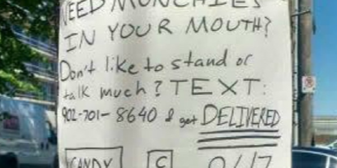 NEED MUNCHIES
IN YOUR MOUTH?
Don't like to stand or
talk much? TEXT:
902-701-8640 & get DELIVERED
CANDY